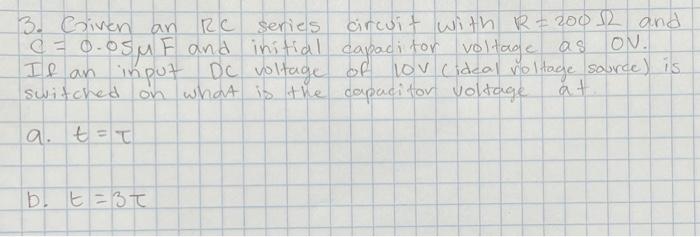 3. Given an RC series circuit with R = 200 Ω and
C = 0.05μF and initial capacitor voltage as 0V.
If an input DC voltage of 10V (ideal voltage source) is
switched on what is the capacitor voltage at.
a. t = τ
b. t = 3τ